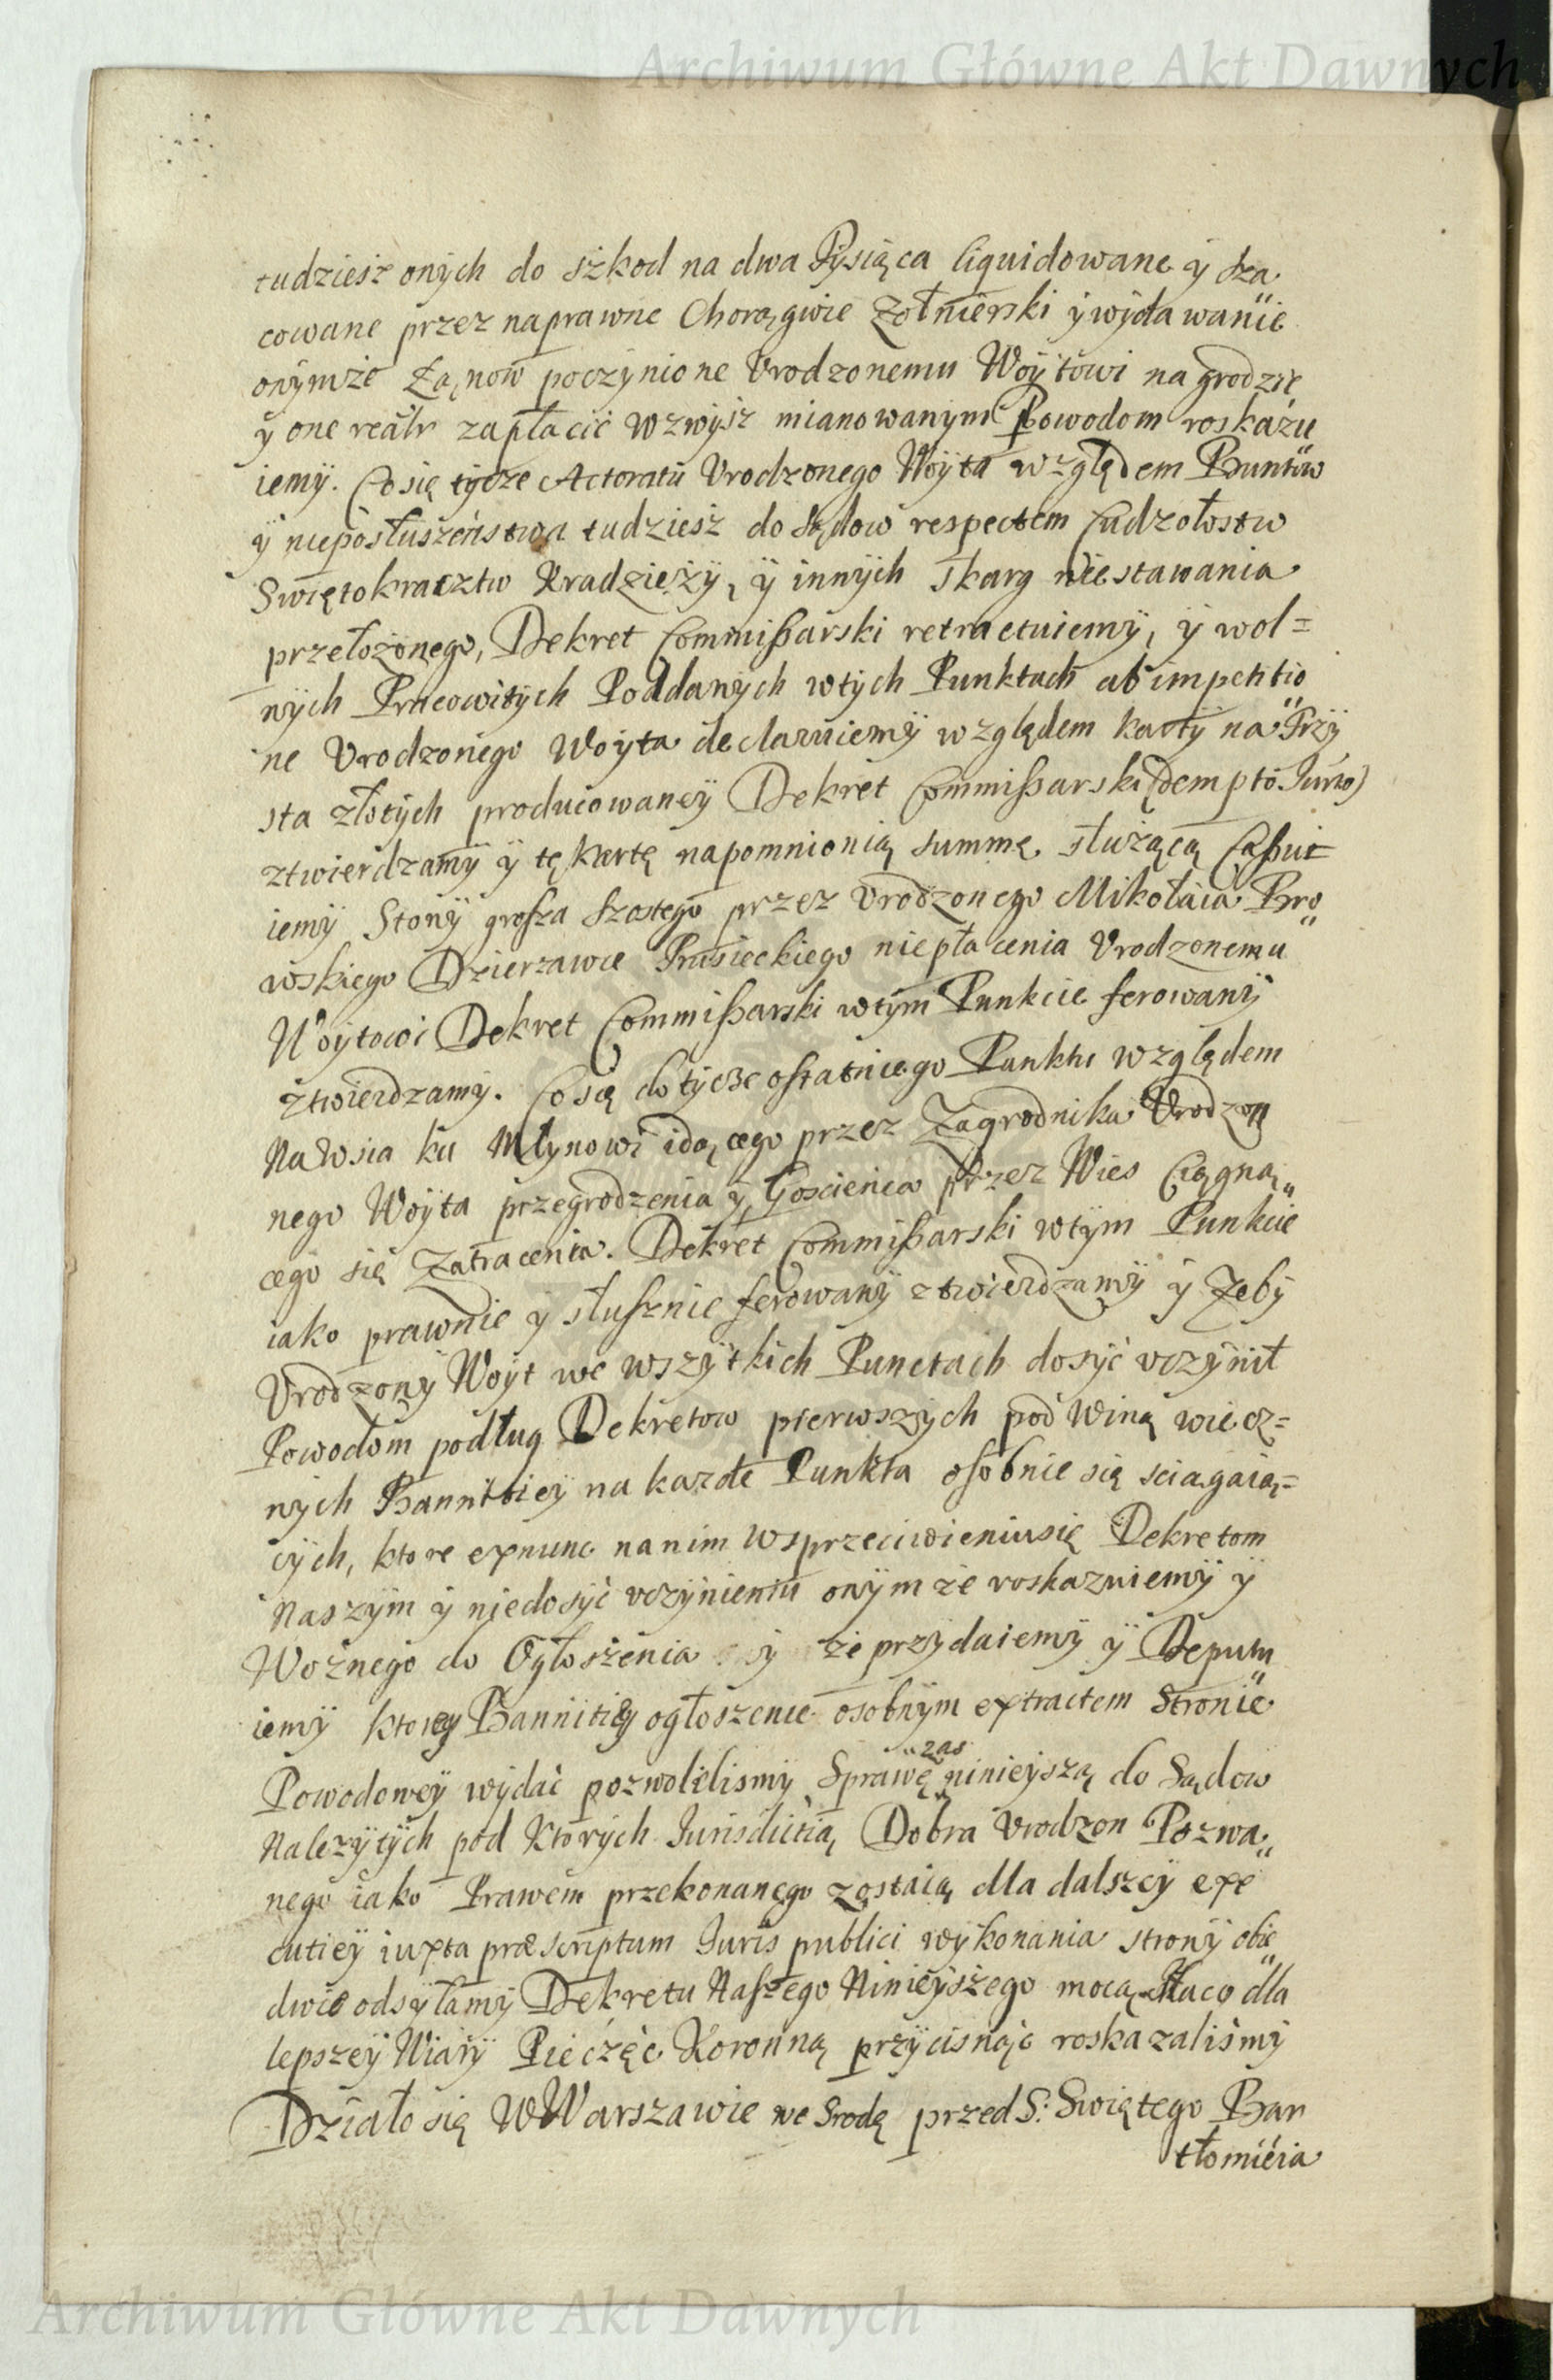 Archiwum Główne Akt Dawnych
tudziesz onÿch do szkod na dwa Tysiąca liquidowane ÿ sza„
cowane przez naprawne Chorągwie Zołnierski ÿ wÿdawanie
onÿmże Łanow poczÿnione Vrodzonemu Woÿtowi nagrodzić
ÿ one zapłacić wzwÿsz mianowanÿm Powodom roskazu„
iemÿ. Co się tÿcze Actoratu Vrodzonego Woÿta względem Buntow
ÿ nieposłuszeństwa tudziesz do Sądow respectem Cudzołostw
Swiętokracztw Kradzieżÿ, ÿ innÿch skarg niestawania
przełożonego, Dekret Commißarski retractuiemÿ, ÿ wol=
nÿch Pracowitÿch Poddanÿch wtÿch Punktach ab impetitio„
ne Vrodzonego Woÿta declaruiemÿ względem kartÿ na Trzÿ
sta złotÿch producowaneÿ Dekret Commißarski (dempto Jurto)
ztwierdzamÿ ÿ tę kartę napomnionią summę służącą Caßuie
iemÿ Stonÿ grosza szostego przez Vrodzonego Mikołaia Bro„
wskiego Dzierzawce Prusieckiego niepłacenia Vrodzonemu
Woÿtowi Dekret Commißarski wtÿm Punkcie ferowanÿ
ztwierdzamÿ. Co się dotÿcze ostatniego Punktu względem
Nawsia ku Młynowi idącego przez Zagrodnika Vrodzon
nego Woÿta przegrodzenia ÿ Goscienca przez Wies Ciągną„
cego się Zatracenia. Dekret Commißarski wtÿm Punkcie
iako prawnie ÿ słusznie ferowanÿ ztwierdzamÿ ÿ Zebÿ
Vrodzonÿ Woÿt we wszÿtkich Punctach dosÿć vczÿnił
Powodom podług Dekretow pierwszÿch pod winą wiecz=
nÿch Bannitieÿ na kazde Punkta osobnie się sciagaią=
cÿch, ktore exnunc nanim wsprzeciwieniusię Dekretom
Naszÿm ÿ niedosÿć vczÿnieniu onÿmże roskazuiemÿ ÿ
Wożnego do Ogłoszenia że przÿdaiemÿ ÿ Deputu„
iemÿ ktoreÿ Bannitieÿ ogłoszenie osobnÿm extractem Stronie
Powodoweÿ wÿdać pozwolilismÿ Sprawę zas ninieÿszą do Sądow
Nalezÿtÿch pod Ktorÿch Jurisdictią Dobra Vrodzon Pozwa„
nego iako Prawem przekonanego zostaią dla dalszeÿ exe
cutieÿ iuxta præscriptum Juris publici wÿkonania stronÿ obie„
dwie odsÿłamÿ Dekretu Naszego Ninieÿszego mocą Naco dla
lepszeÿ Wiarÿ Pieczęć Koronną przÿcisnąć roskazalismÿ
Działo się W Warszawie we Srodę przed S: Swiętego Bar
tłomieia
Archiwum Główne Akt Dawnych